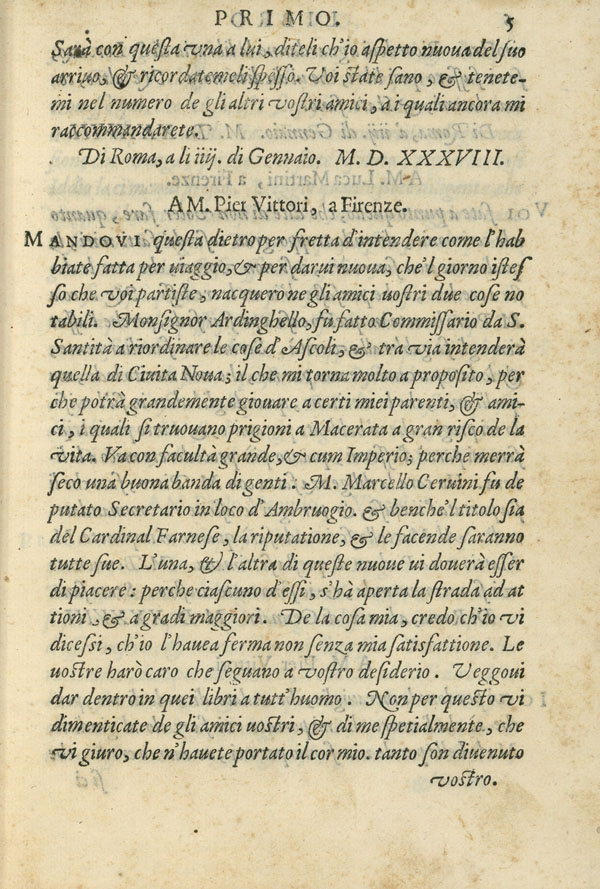 PRIMO. 5
Sarà con questa vna a lui, diteli ch'io aspetto nuoua del suo
arriuo, & ricordatemeli spesso. Voi state sano, & tenete-
mi nel numero de gli altri vostri amici, a i quali ancora mi
raccommandarete.
Di Roma, a li iiij. di Gennaio. M. D. XXXVIII.
A M. Pier Vittori, a Firenze.
MANDOVI questa dietro per fretta d'intendere come l'hab
biate fatta per uiaggio, & per darui nuoua, che'l giorno istes
so che voi partiste, nacquero ne gli amici uostri due cose no
tabili. Monsignor Ardinghello, fù fatto Commissario da S.
Santità a riordinare le cose d'Ascoli, & tra via intenderà
quella di Ciuita Noua; il che mi torna molto a proposito, per
che potrà grandemente giouare a certi miei parenti, & ami-
ci, i quali si truouano prigioni a Macerata a gran risco de la
vita. Va con facultà grande, & cum Imperio; perche merrà
seco una buona banda di genti. M. Marcello Ceruini fu de
putato Secretario in loco d'Ambruogio. & benche'l titolo sia
del Cardinal Farnese, la riputatione, & le facende saranno
tutte sue. L'una, & l'altra di queste nuoue ui douerà esser
di piacere: perche ciascuno d'essi, s'hà aperta la strada ad at
tioni, & a gradi maggiori. De la cosa mia, credo ch'io vi
dicessi, ch'io l'hauea ferma non senza mia satisfattione. Le
uostre harò caro che seguano a vostro desiderio. Veggoui
dar dentro in quei libri a tutt'huomo. Non per questo vi
dimenticate de gli amici uostri, & di me spetialmente, che
vi giuro, che n'hauete portato il cor mio. tanto son diuenuto
vostro.